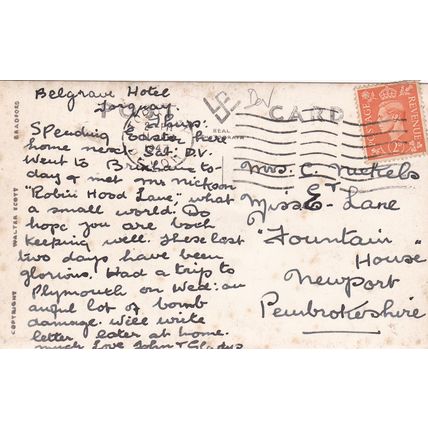 Belgrave Hotel
Torquay.
Thurs.
Spending Easter here
home next Sat. D.V.
Went to Brixham to-
day & met Mrs Nickson
"Robin Hood Lane," what
a small world. Do
hope you are both
keeping well. These last
two days have been
glorious. Had a trip to
Plymouth on Wed: an
awful lot of bomb
damage. Will write
letter later at home.
much love John & Gladys
POST CARD
REAL
PHOTOGRAPH
Dev
Mrs. C.
& Miss E. Lane
"Fountain"
House
Newport
Pembrokeshire
POSTAGE
COPYRIGHT WALTER SCOTT BRADFORD